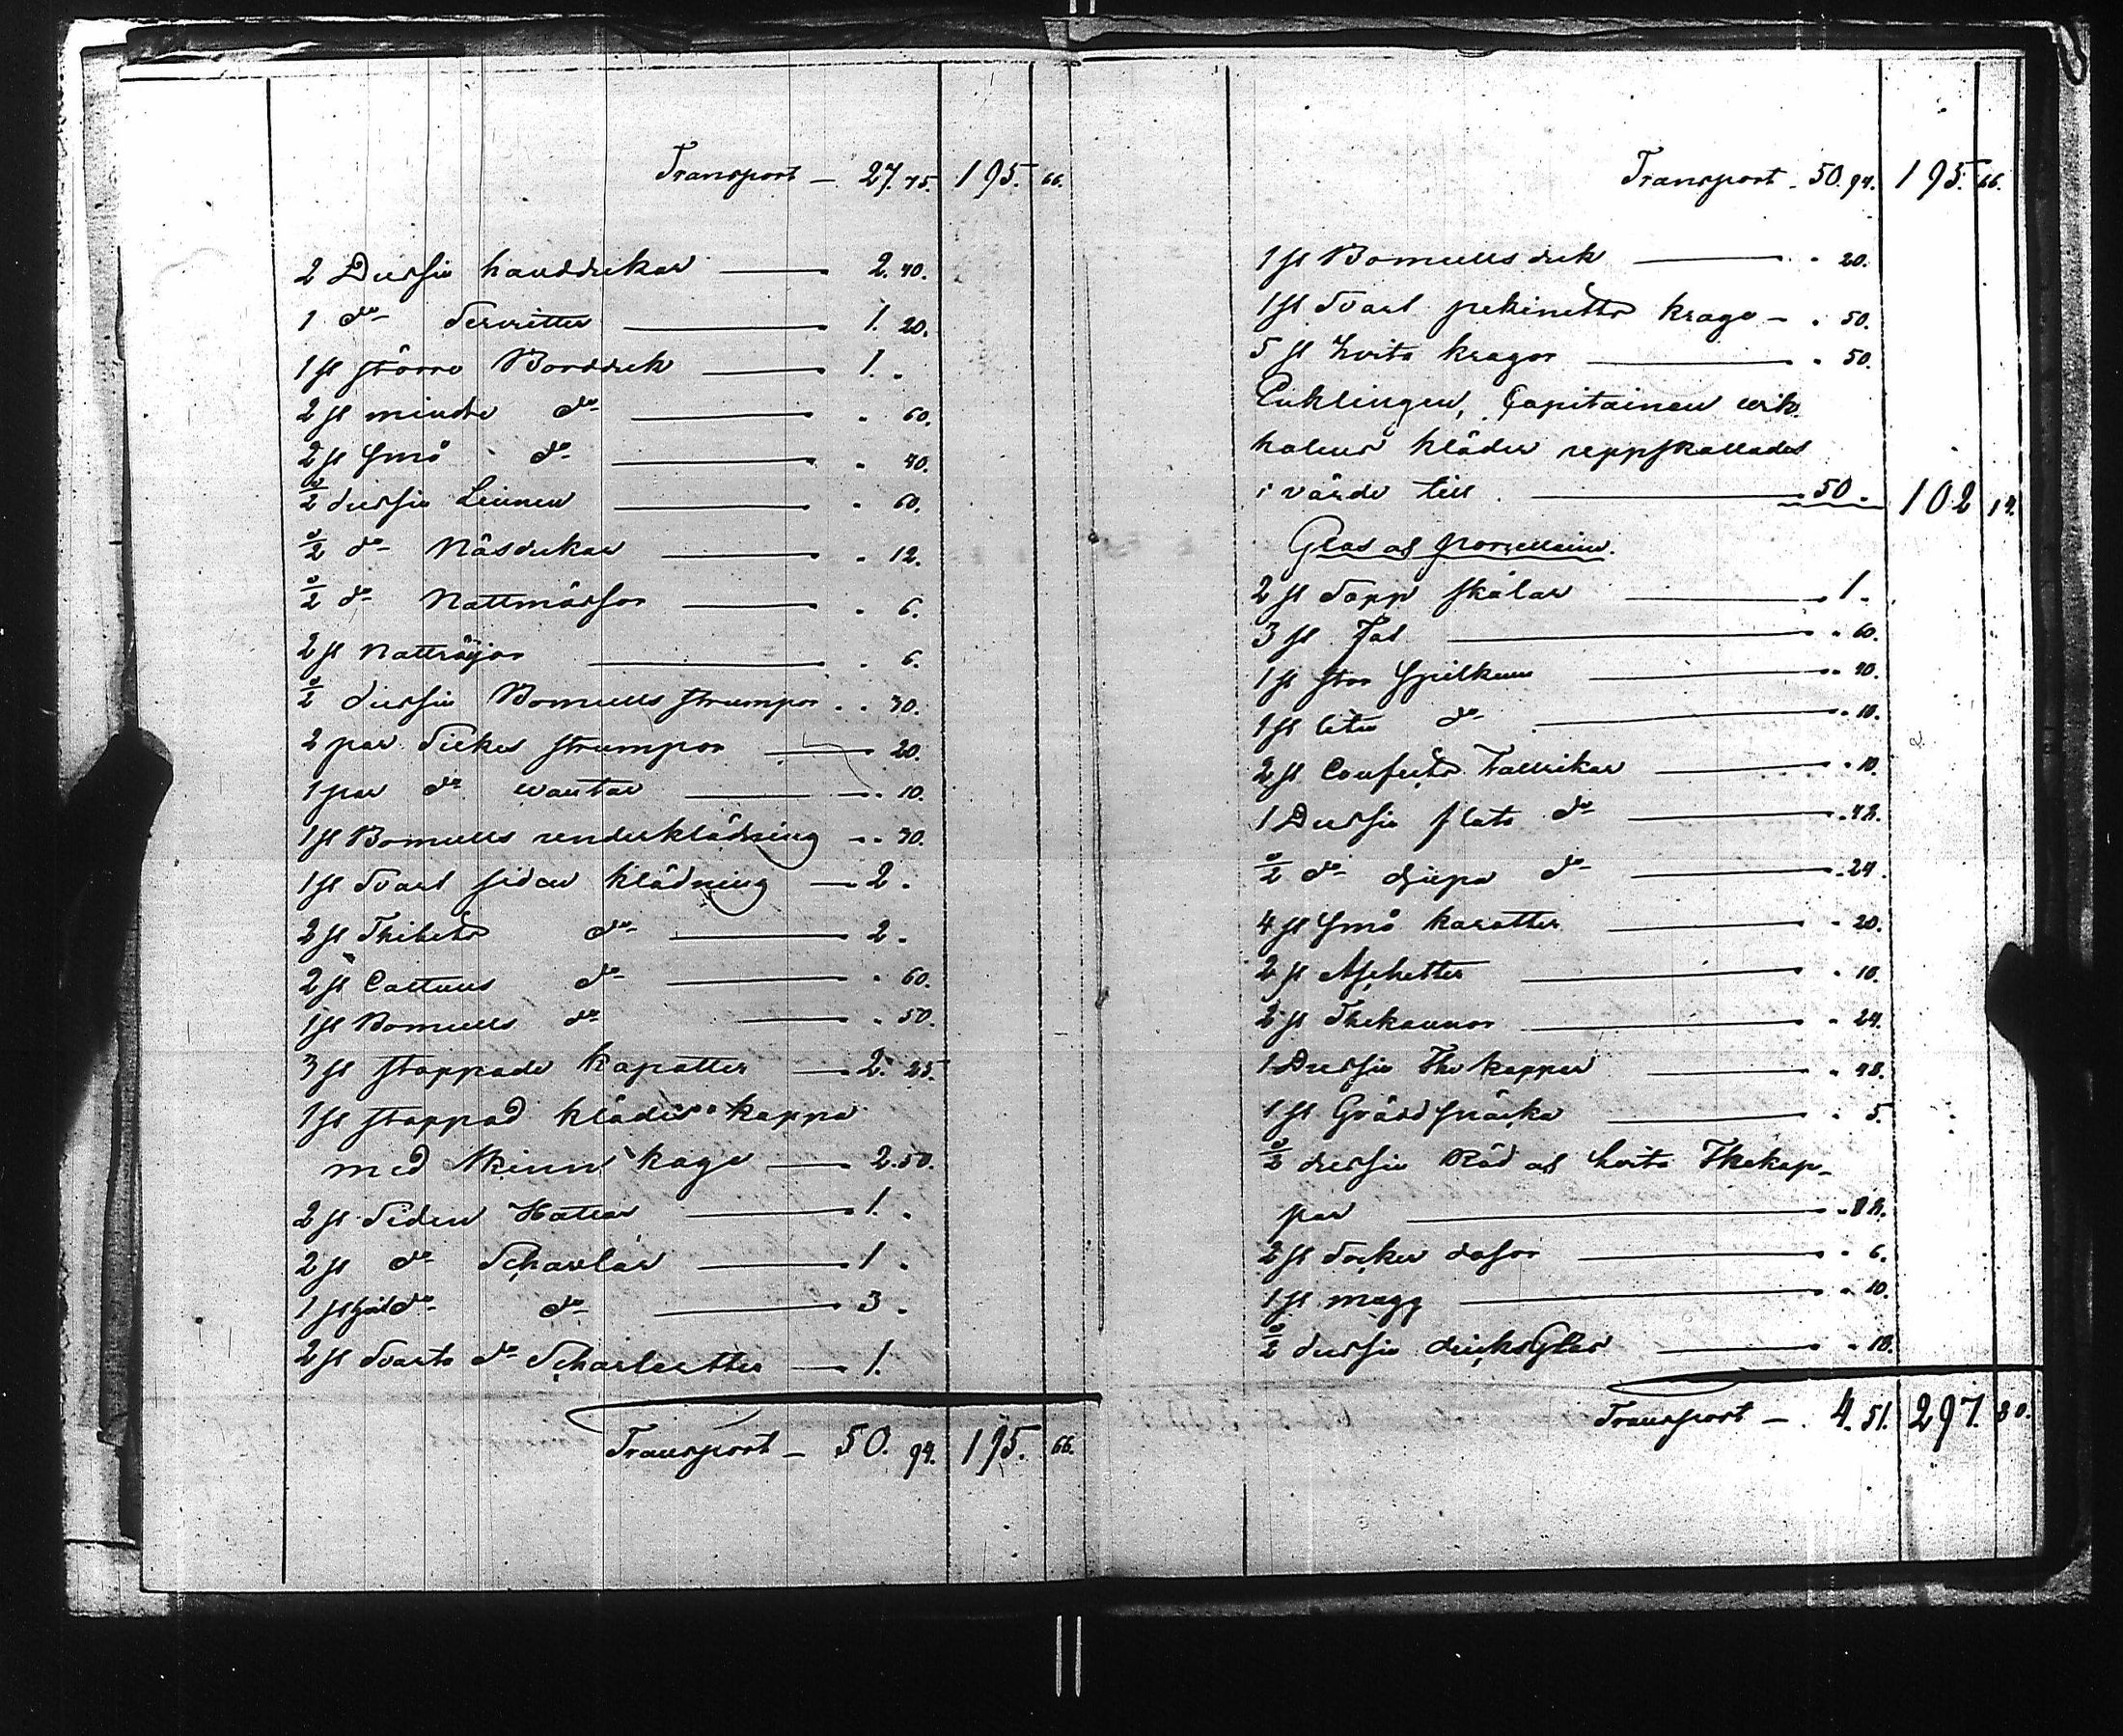 Transport — 27. 75. 195. 66.
2 Dussin handdukar — 2. 40.
1 do Servetter — 1. 20.
1 st större Bordduk — 1. "
2 st mindre do — " 60.
2 st Små do — " 40.
½ dussin Linnen — " 60.
½ do Näsdukar — " 12.
½ do Nattmössor — " 6.
2 st Nattröjor — " 6.
½ dussin Bomulls strumpor " 30.
2 par Silkes strumpor — 20.
1 par do wantar — " 10.
1 st Bomulls underklädning — " 30.
1 st Svart siden klädning — 2. "
2 st Thibets do — 2. "
2 st Cattuns do — " 60.
1 st Bomulls do — " 50.
3 st stoppade kapotter — 2. 25.
1 st stoppad klädes kappa
med Skinn kage — 2. 50.
2 st Siden Hattar — 1. "
2 st do Schavlar — 1. "
1 st do do — 3. "
2 st Svarta do Scharletter — 1.
Transport — 50. 94. 195. 66.
Transport — 50. 94. 195. 66.
1 st Bomulls duk — " 20.
1 st Svart pekinetts krage — " 50.
5 st hvita kragor — " 50.
Enklingen, Capitainen
kläder uppskattades
i värde till — 50. 102 14.
Glas och porzellaine.
2 st Sopp skålar — 1.
3 st Fat — " 60.
1 st stor Spilkum — " 40.
1 st liten do — " 10.
2 st Confects Tallrikar — " 10.
1 Dussin flata do — " 48.
½ do djupa do — " 24.
4 st Små karotter — " 20.
2 st Aschetter — " 10.
2 st Thekannor — " 24.
1 Dussin The koppar — " 48.
1 st Gräddsnäcka — " 5.
½ dussin Röd och hvita Thekop-
par —
2 st Socker dosor — " 6.
1 st mugg — " 10.
½ dussin dricksglas — " 18.
Transport — 4. 51. 297. 80.